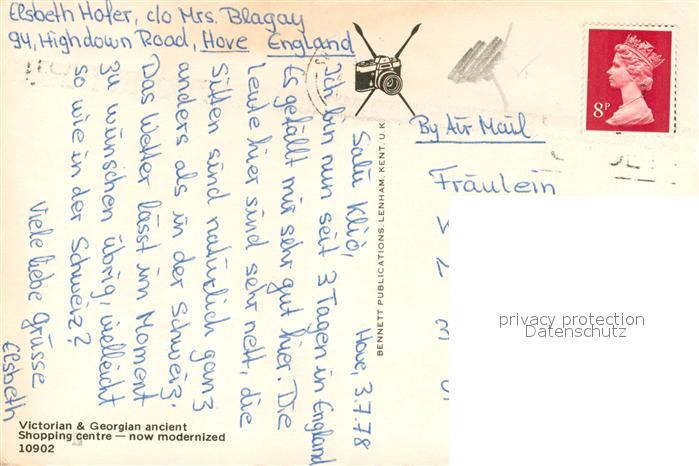 Elsbeth Hofer, c/o Mrs. Blagay
94, Highdown Road, Hove England
Hove, 3.7.78
Salü Kliò,
Ich bin nun seit 3 Tagen in England
Es gefällt mir sehr gut hier. Die
Leute hier sind sehr nett, die
Sitten sind natürlich ganz
anders als in der Schweiz.
Das Wetter lässt im Moment
zu wünschen übrig, vielleicht
so wie in der Schweiz?
Viele liebe Grüsse
Elsbeth
BENNETT PUBLICATIONS, LENHAM, KENT. U.K.
8P
By Air Mail
Fräulein
privacy protection
Datenschutz
Victorian & Georgian ancient
Shopping centre — now modernized
10902